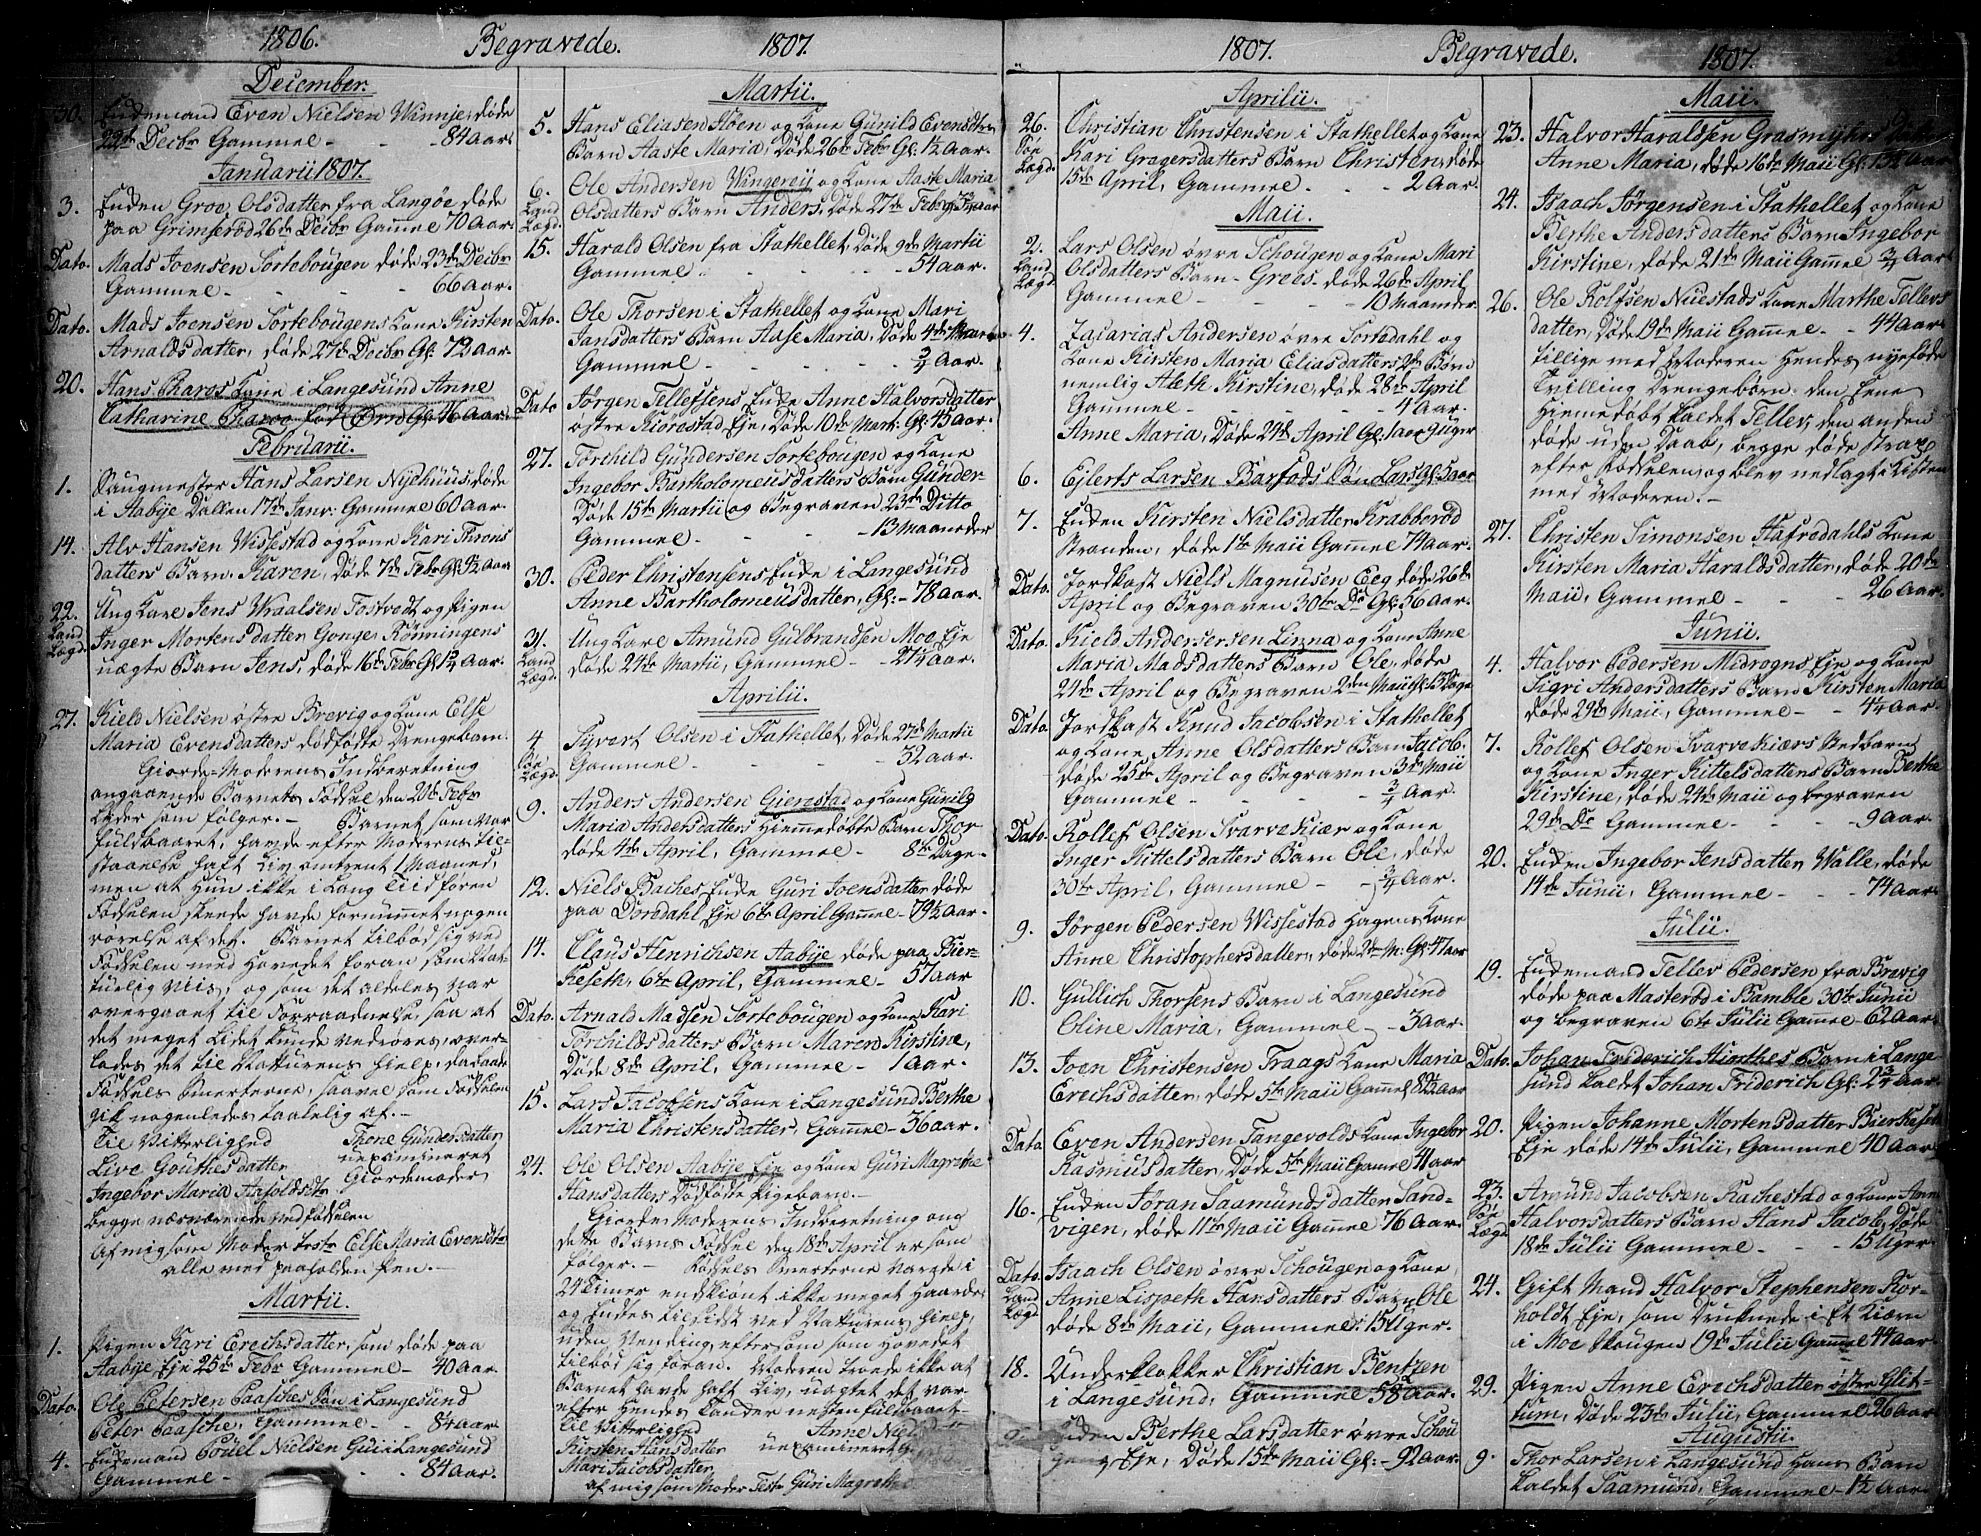 1806. Begravede. 1807.
December.
30. Enkemand Even Nielsen Winnje, døde
22de Decbr Gammel - - 84 Aar.
Januarii 1807.
3. Enken Groe Olsdatter fra Langøe døde
paa Grimserød 26de Decbr Gammel 70 Aar.
Dato. Mads Joensen Sortebougen døde 23de Decbr
Gammel - - - 66 Aar.
Dato. Mads Joensen Sortebougens Kone Kirsten
Arnaldsdatter, døde 27de Decbr Gl: 72 Aar.
20. Hans Charos Kone i Langesund Anne
Catharine Charoe fød Ørn Gl: 76 Aar.
Februarii.
1. Saugmester Hans Larsen Nyehuus, døde
i Aabye Dallen 17de Janv: Gammel 60 Aar.
14. Alv Hansen Wissestad og Kone Kari Throns
datters Barn Karen, døde 7de Febr Gl: ½ Aar
22. Ung Karl Jens Wraalsen Tostvedt og Pigen
Land Inger Mortensdatter Gonge Rønningens
Lægd. uægte Barn Jens, døde 16de Febr Gl: 1¼ Aar.
27. Kield Nielsen østre Brevig og Kone Else
Maria Evensdatters dødfødte Drengebarn.
Giorde-Moderens Indberetning
angaaende Barnets Fødsel den 20de Febr
lyder som følger. - Barnet som var
fuldbaaret, havde efter Moderens til-
staaelse haft Liv omtrent 1 Maaned,
men at hun ikke i lang Tiid føren
Fødselen skeede havde fornummet nogen
rørelse af det. Barnet tilbød sig ved
Fødselen med Hovedet foran som Nat-
turlig Viis, og som det aldeles var
overgaaet til Forraadnelse, saa at
det meget lidet kunde vedrøres, over-
lodes det til Naturens hielp, da saavel
Fødsels Smerterne, saavel som Fødselen
gik nogenledes taalelig af. -
Til Vitterlighed Thone Gundersdatter
Live Gouthesdatter uexamineret
Ingebor Maria Aasoldsdtr Giordemoder
begge nærværende ved fødselen
Af mig som Moder testr Else Maria Evensdtr
alle med paaholden Pen. -
Martii.
1. Pigen Kari Erechsdatter, som døde paa
Aabye Eje 25de Febr Gammel - 40 Aar.
Dato. Ole Petersen Paasches Søn i Langesund
Peter Paasche, Gammel - - 84 Aar
4. Enkemand Pouel Nielsen Gui i Langesund
Gammel - - - 84 Aar.
Martii.
5. Hans Eliasen Floen og Kone Gunild Evensdtrs
Barn Aaste Maria, døde 26de Febr Gl: ½ Aar.
6. Ole Andersen Wingereij og Kone Aaste Maria
Land Olsdatters Barn Anders, døde 27de Febr Gl: ¾ Aar
Lægd.
15. Harald Olsen fra Stathellet, døde 9de Martii
Gammel - - - - 54 Aar.
Dato. Ole Thorsen i Stathellet og Kone Mari
Jansdatters Barn Aase Maria, døde 4de Martii
Gammel - - - - ¾ Aar.
Dato Jørgen Tellefsens Enke Anne Halvorsdatter
østre Kiørestad Eje, døde 10de Mart: Gl: 45 Aar.
27. Torchild Gundersen Sortebougen og Kone
Ingebor Bartholomeusdatters Barn Gunder
døde 15de Martii og Begraven 23de Ditto
Gammel - - - 13 Maaneder
30. Peder Christensens Enke i Langesund
Anne Bartholomeusdatter, Gl: - 78 Aar.
31. Ung Karl Amund Gulbrandsen Moe Eje
Land døde 24de Martii, Gammel - 21¼ Aar.
Lægd.
Aprilii.
4 Syvert Olsen i Stathellet døde 27de Martii
Søe Gammel - - - - 32 Aar.
Lægd.
9. Anders Andersen Gierestad og Kone Gunild
Maria Andersdatters Hjemmedøbte Barn Thor
døde 4de April, Gammel - 8te Dage.
12. Niels Baches Enke Guri Joensdatter døde
paa Dordahl Eje 6te April Gammel - 79½ Aar.
14. Claus Henrichsen Aabye døde paa Bier-
keseth, 6te April, Gammel - 51 Aar
Dato. Arnald Madsen Sortebougen og Kone Kari
Torchildsdatters Barn Maren Kirstine,
døde 8de April, Gammel - 1 Aar.
15. Lars Jacobsens Kone i Langesund Berthe
Maria Christensdatter, Gammel - 36 Aar.
24. Ole Olsen Aabye Eje og Kone Guri Magrethe
Hansdatters dødfødte Pigebarn. -
Giorde Moderens Indberetning om
dette Barns Fødsel den 18de April er som
følger. - Fødsels Smerterne varede i
24 Timer endskiønt ikke meget haarde
og endtes tilsidst ved Naturens hielp,
uden Vending, eftersom som Hovedet
tilbød sig foran. Moderen troede ikke at
Barnet havde haft Liv, uagtet det var
efter hendes Tanker næsten fuldbaaret
Til Vitterlighed Anne Niel
Kirsten Hansdatter uexamineret G
Mari Jacobsdatter
af mig som Moder Testr Guri Magrethe
1807. Begravede. 1807.
Aprilii.
26. Christian Christensen i Stathellet og Kone
Søe Kari Gregersdatters Barn Christen, døde
Lægd. 15de April, Gammel - - 2 Aar.
Maii.
2. Lars Olsen øvre Schougen og Kone Mari
Land Olsdatters Barn Grees. døde 26de April
Lægd. Gammel - - - 10 Maander.
4. Zacarias Andersen øvre Sortedahl og
Kone Kirsten Maria Eliasdatters 2de Børn
nemlig Aleth Kirstine, døde 28de April
Gammel - - - - 4 Aar.
Anne Maria, døde 24de April Gl: 1 aar 9 uger
6. Ejlerts Larsen Barfods Søn Lars Gl: 5 aar
7. Enken Kirsten Nielsdatter Krabberød
Stranden, døde 1te Maii Gammel 74 Aar.
Dato. Jordkast Niels Magnusen Eeg døde 26de
April og Begraven 30te Do Gl: 56 Aar.
Dato. Kield Andersersen Linna og Kone Anne
Maria Madsdatters Barn Ole, døde
24de April og Begraven 2den Maii Gl: 13 Dage
Dato. Jordkast Knud Jacobsen i Stathellet
og Kone Anne Olsdatters Barn Jacob.
døde 25de April og Begraven 3de Maii
Gammel - - - ¾ Aar.
Dato. Rollef Olsen Svarvekiær og Kone
Inger Kittelsdatters Barn Ole, døde
30te April, Gammel - - ¾ Aar.
9. Jørgen Pedersen Wissestad Hagens Kone
Anne Christophersdatter, døde 2den M: Gl: 47 Aar
10. Gullich Thorsens Barn i Langesund
Oline Maria, Gammel - - 3 Aar.
13. Joen Christensen Traags Kone Maria
Erechsdatter, døde 5te Maii Gammel 8½ Aar
Dato Even Andersen Tangevolds Kone Ingebor
Rasmusdatter, døde 5te Maii Gammel 41 Aar
16. Enken Jøran Saamundsdatter Sand-
vigen, døde 11te Maii Gammel 76 Aar.
Dato. Isaach Olsen øvre Schougen og Kone
Land Anne Lisbeth Hansdatters Barn Ole
Lægd døde 8de Maii, Gammel: 15 Uger.
18. Underklokker Christian Bentzen
i Langesund, Gammel 58½ Aar.
Enken Berthe Larsdatter øvre Schou
gens Eje, døde 15de Maii Gl: - 92 Aar.
Maii.
23. Halvor Haraldsen Grasmyhrs Datter
Anne Maria, døde 16de Maii Gl: 15½ Aar
24. Isaach Jørgensen i Stathellet og Kone
Berthe Andersdatters Barn Ingebor
Kirstine, døde 21de Maii Gammel ¾ Aar
26. Ole Rolfsen Nuestads Kone Marthe Tellevs
datter, døde 19de Maii Gammel - - 44 Aar
tillige med Moderen hendes nyefødte
Tvilling Drengebørn: den Eene
Hiemedøbt kaldet Tellev, den anden
døde uden Daab, begge døde strax
efter Fødselen, og blev nedlagt i Kisten
med Moderen. -
27. Christen Simonsen Hafredahls Kone
Kirsten Maria Haraldsdatter, døde 20de
Maii, Gammel - - - 26 Aar.
Junii.
4. Halvor Pedersen Midrogns Eje og Kone
Sigri Andersdatters Barn Kirsten Maria
døde 29de Maii, Gammel - - 4¼ Aar.
7. Rollef Olsen Svarvekiærs Stedbarn
og Kone Inger Kittelsdatters Barn Berthe
Kirstine, døde 24de Maii og begraven
29de Do Gammel - - - 9 Aar.
20. Enken Ingebor Jensdatter Walle, døde
14de Junii, Gammel - - 74 Aar.
Julii.
19. Enkemand Tellev Pedersen fra Brevig
døde paa Masterød i Bamble 30te Junii
og begraven 6te Julii Gammel - 62 Aar
Dato. Johan Friderich Hinthes Barn i Lange-
sund kaldet Johan Friderich Gl: 2¾ Aar.
20. Pigen Johanne Mortensdatter Bierkeset
Eje døde 14de Julii, Gammel 40 Aar.
23. Amund Jacobsen Rachestad og Kone Anne
Søe Halvorsdatters Barn Hans Jacob, døde
Lægd 18de Julii Gammel - - - 15 Uger
24. Gift Mand Halvor Stephensen Ror-
holdt Eje, som druknede i Et Kiærn
i Moe Skougen 19de Julii Gammel 44 Aar.
29. Pigen Anne Erechsdatter østre Glit-
tum, døde 23de Julii, Gammel 26 Aar
Augustii.
9. Thor Larsen i Langesund Hans Barn
kaldet Saamund, Gammel - 1½ Aar.